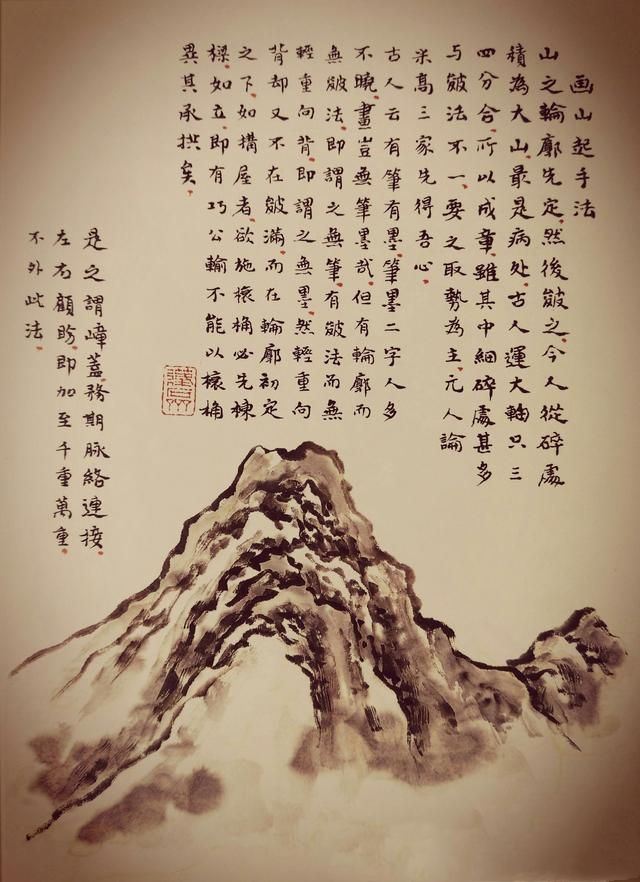 画山起手法
山之輪廓先定。然後皴之。今人從碎處
積為大山。最是病處。古人運大軸只三
四分合。所以成章。雖其中細碎處甚多
与皴法不一。要之取勢為主。元人論
米高三家先得吾心。
古人云有筆有墨。筆墨二字人多
不曉。畫豈無筆墨哉。但有輪廓而
無皴法。即謂之無筆。有皴法而無
輕重向背。即謂之無墨。然輕重向
背却又不在皴滿。而在輪廓初定
之下。如構屋者。欲施榱桷必先棟
樑。如立。即有巧公輸不能以榱桷
異其承拱矣。
是之謂嶂蓋。務期脉絡連接。
左右顧盼。即加至千重萬重。
不外此法。